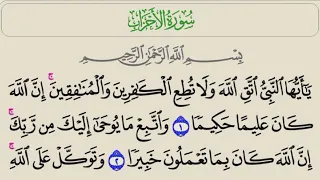 سُورَةُ الْأَحْزَابِ
بِسْمِ اللَّهِ الرَّحْمَٰنِ الرَّحِيمِ
يَٰٓأَيُّهَا النَّبِيُّ اتَّقِ اللَّهَ وَلَا تُطِعِ الْكَٰفِرِينَ وَالْمُنَٰفِقِينَ ۚ إِنَّ اللَّهَ
كَانَ عَلِيمًا حَكِيمًا ١ وَاتَّبِعْ مَا يُوحَىٰٓ إِلَيْكَ مِن رَّبِّكَ ۚ
إِنَّ اللَّهَ كَانَ بِمَا تَعْمَلُونَ خَبِيرًا ٢ وَتَوَكَّلْ عَلَى اللَّهِ ۚ